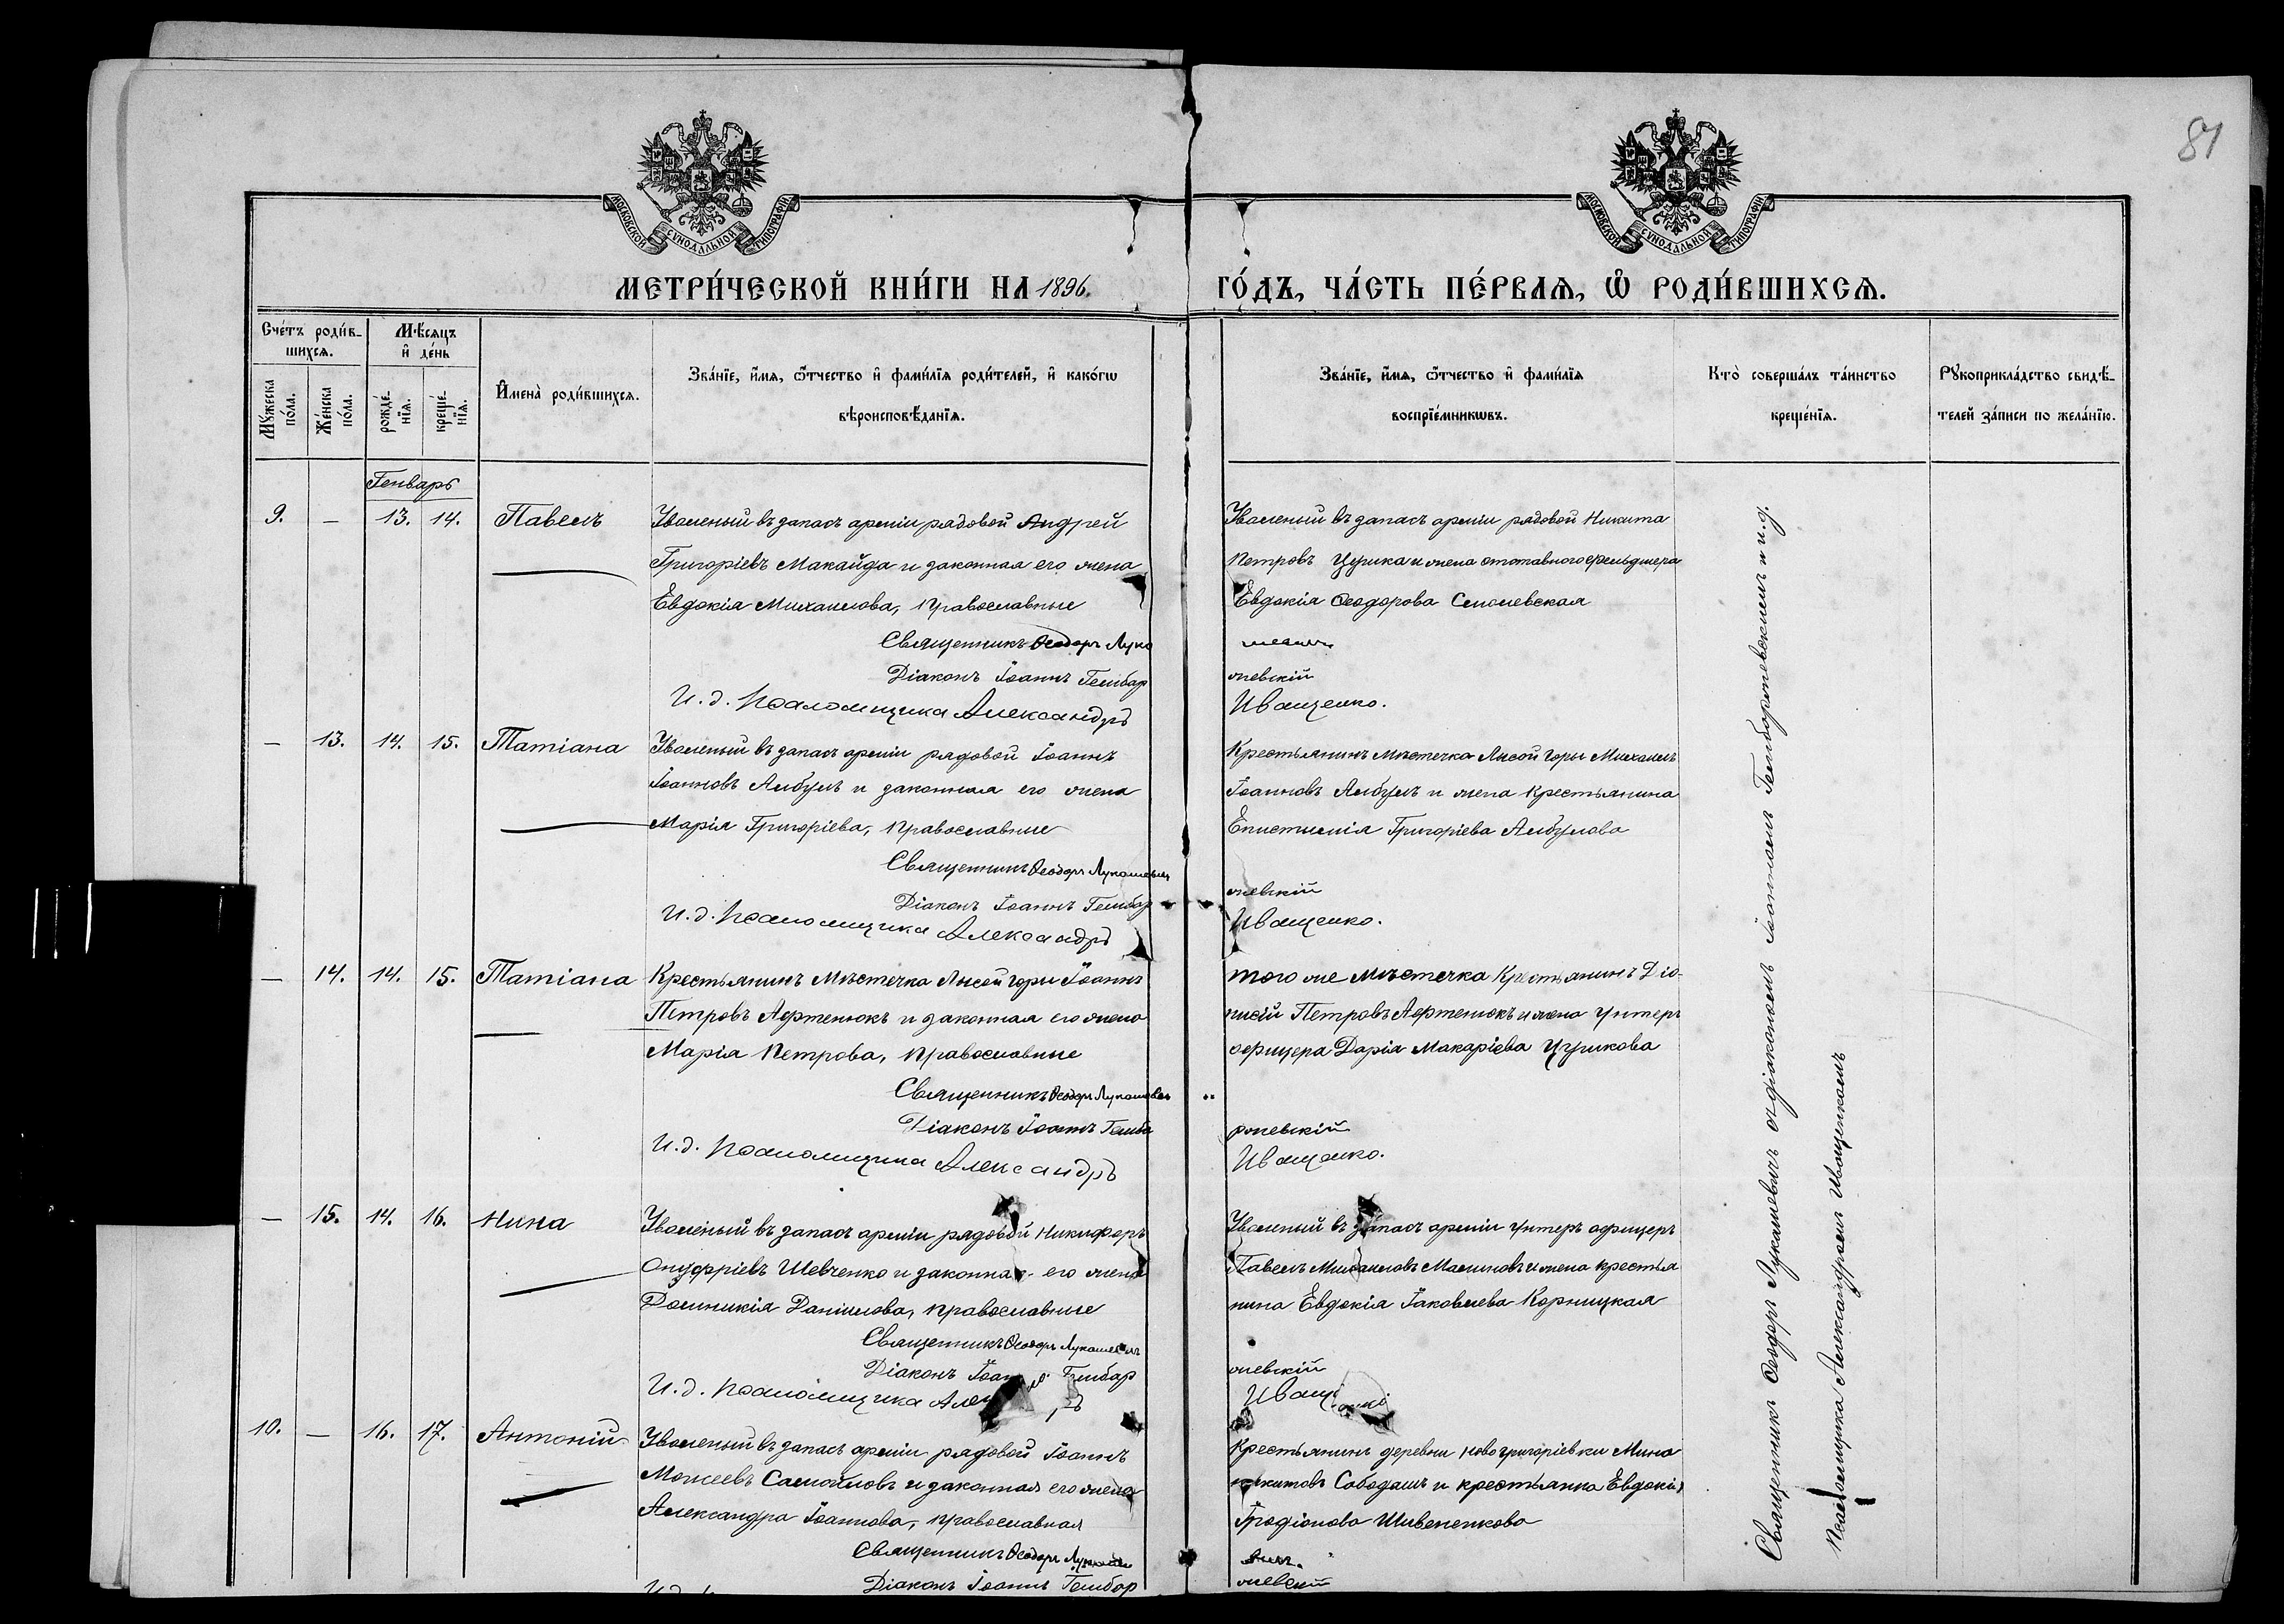 81
МОСКОВСКОЙ СУНОДАЛЬНОЙ ТИПОГРАФІИ
МОСКОВСКОЙ СУНОДАЛЬНОЙ ТИПОГРАФІИ
МЕТРИ́ЧЕСКОЙ КНИ́ГИ НА 1896. ГО́ДЪ, ЧА́СТЬ ПЕ́РВАЯ, Ѡ РОДИ́ВШИХСѦ.
Сче́тъ роди́в-
шихсѧ.
Мѣ́сяцъ
и҆ де́нь
Мꙋжеска
по́ла.
Же́нска
по́ла.
рожде́-
нїѧ.
креще́-
нїѧ.
И҆мена̀ роди́вшихсѧ.
Зва́нїе, и҆́мѧ, ѻ҆́тчество и҆ фами́лїѧ роди́телей, и҆ како́гѡ
вѣроисповѣ́данїѧ.
Зва́нїе, и҆́мѧ, ѻ҆́тчество и҆ фами́лїѧ
воспрїе́мникѡвъ.
Кто̀ соверша́лъ та́инство
креще́нїѧ.
Рꙋкоприкла́дство свидѣ́-
телей за́писи по жела́нїю.
Генварь
9. — 13. 14. Павелъ
Уволеный въ запасъ арміи рядовой Андрей
Григоріевъ Макайда и законная его жена
Евдокія Михаилова, православные
Священникъ Ѳеодоръ Лука
Діаконъ Іоаннъ Гембар
И. д. Псаломщика Александръ
Уволеный въ запасъ арміи рядовой Никита
Петровъ Цурика и жена отставного фельдшера
Евдокія Ѳеодорова
жевскій
Иващенко.
— 13. 14. 15. Татіана
Уволеный въ запасъ арміи рядовой Іоаннъ
Іоанновъ Албулъ и законная его жена
Марія Григоріева, православные
Священникъ Ѳеодоръ Лукашевичъ
Діаконъ Іоаннъ Гембар
И. д. Псаломщика Александръ
Крестьянинъ мѣстечка Лысой Горы Михаилъ
Іоанновъ Албулъ и жена крестьянина
Епистимія Григоріева Албулова
жевскій
Иващенко.
— 14. 14. 15. Татіана
Крестьянинъ мѣстечка Лысой Горы Іоаннъ
Петровъ Афтенюкъ и законная его жена
Марія Петрова, православные
Священникъ Ѳеодоръ Лукашевич
Діаконъ Іоаннъ Гемба
И. д. Псаломщика Александръ
того же мѣстечка крестьянинъ Діо-
нисій Петровъ Афтенюкъ и жена унтеръ
офицера Дарія Макаріева Цурикова
ржевскій
Иващенко.
— 15. 14. 16. Нина
Уволеный въ запасъ арміи рядовой Никифоръ
Онуфріевъ Шевченко и законная его жена
Домникія Даніилова, православные
Священникъ Ѳеодоръ Лукашевичъ
Діаконъ Гембар
И. д. Псаломщика
Уволеный въ запасъ арміи унтеръ офицеръ
Павелъ Михаиловъ Малиновъ и жена крестья
нина Евдокія Іаковлева Корницкая
жевскій
10. — 16. 17. Антоній
Уволеный въ запасъ арміи рядовой Іоаннъ
Моисеевъ Самойловъ и законная его жена
Александра Іоаннова, православная
Священникъ Ѳеодоръ
Діаконъ Іоаннъ Гембар
Крестьянинъ деревни Новогригоріевки Мина
Никитовъ Сободашъ и крестьянка Евдокія
Иродіонова Шивененкова
жевскій
Священникъ Ѳеодоръ Лукашевичъ съ діакономъ Іоанномъ Гембаржевскимъ и и.д.
Псаломщика Александромъ Иващенкомъ